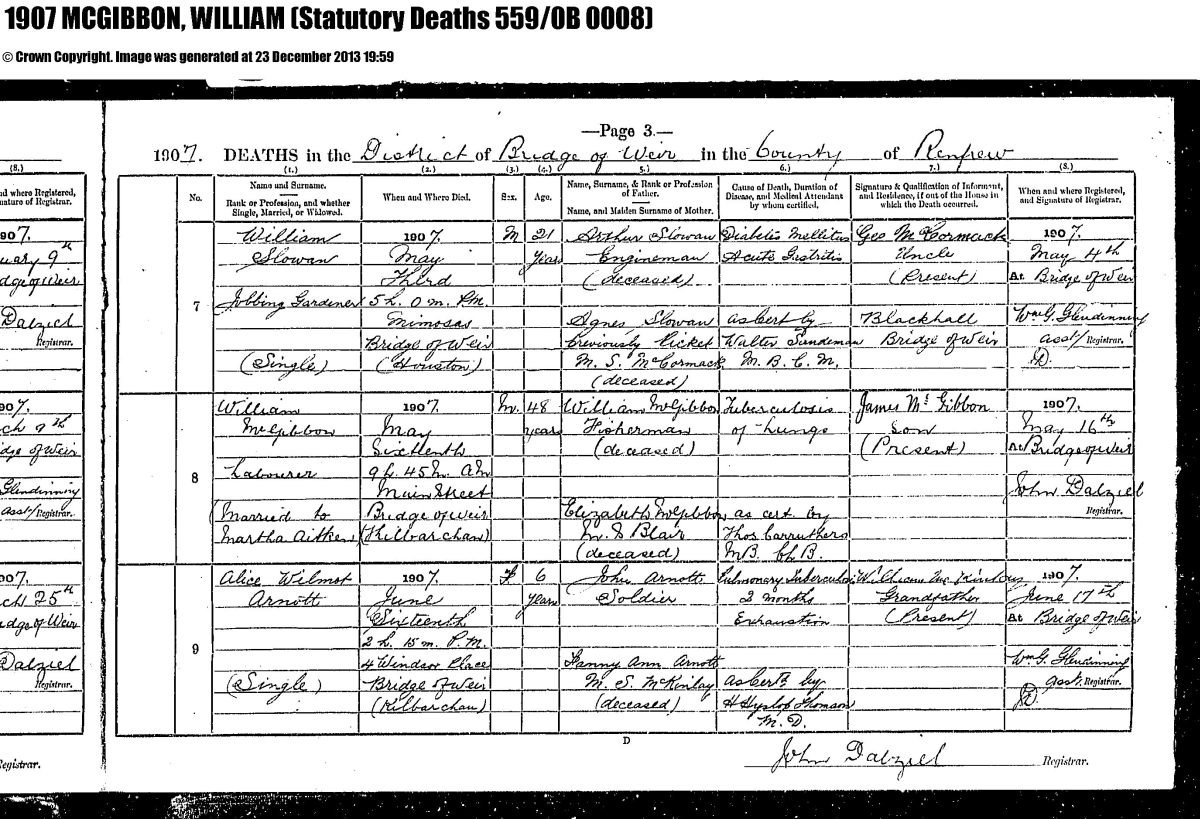 1907 MCGIBBON, WILLIAM (Statutory Deaths 559/0B 0008)
© Crown Copyright. Image was generated at 23 December 2013 19:59
—Page 3.—
1907. DEATHS in the District of Bridge of Weir in the County of Renfrew
(1.) (2.) (3.) (4.) 5.) 6.) 7.) (8.)
No.
Name and Surname.
Rank or Profession, and whether
Single, Married, or Widowed.
When and Where Died.
Sex.
Age.
Name, Surname, & Rank or Profession
of Father.
Name, and Maiden Surname of Mother.
Cause of Death, Duration of
Disease, and Medical Attendant
by whom certified.
Signature & Qualification of Informant,
and Residence, if out of the House in
which the Death occurred.
When and where Registered,
and Signature of Registrar.
7
William
Slowan
Jobbing Gardener
(Single)
1907.
May
Third
5 h. 0 m. P.M.
Mimosas
Bridge of Weir
(Houston)
M
21
Years
Arthur Slowan
Engineman
(deceased)
Agnes Slowan
previously Licket
M. S. McCormack
(deceased)
Diabetes Mellitus
Acute Gastritis
as Cert by
Walter Sandeman
M. B. C. M.
Geo McCormack
Uncle
(Present)
Blackhall
Bridge of Weir
1907.
May 4th
At Bridge of Weir
Wm G. Glendinning
asst/ Registrar.
JD.
8
William
McGibbon
Labourer
(Married to
Martha Aitken)
1907.
May
Sixteenth
9 h. 45 m. AM
Main Street
Bridge of Weir
(Kilbarchan)
M.
48
years
William McGibbon
Fisherman
(deceased)
Elizabeth McGibbon
M. S Blair
(deceased)
Tuberculosis
of Lungs
as cert by
Thos Carruthers
MB. Ch B.
James McGibbon
Son
(Present)
1907.
May 16th
At Bridge of Weir
John Dalziel
Registrar.
9
Alice Wilmot
Arnott
(Single)
1907.
June
Sixteenth
2 h. 15 m. P.M.
4 Windsor Place
Bridge of Weir
(Kilbarchan)
F
6
Years
John Arnott
Soldier
(deceased)
Fanny Ann Arnott
M. S. McKinlay
Pulmonary Tuberculosis
2 months
Exhaustion
as Certd by
H Hyslop Thomson
M. D.
William
Grandfather
(Present)
1907.
June 17th
At Bridge of Weir
Wm G. Glendinning
asst. Registrar.
JD.
D
John Dalziel Registrar.